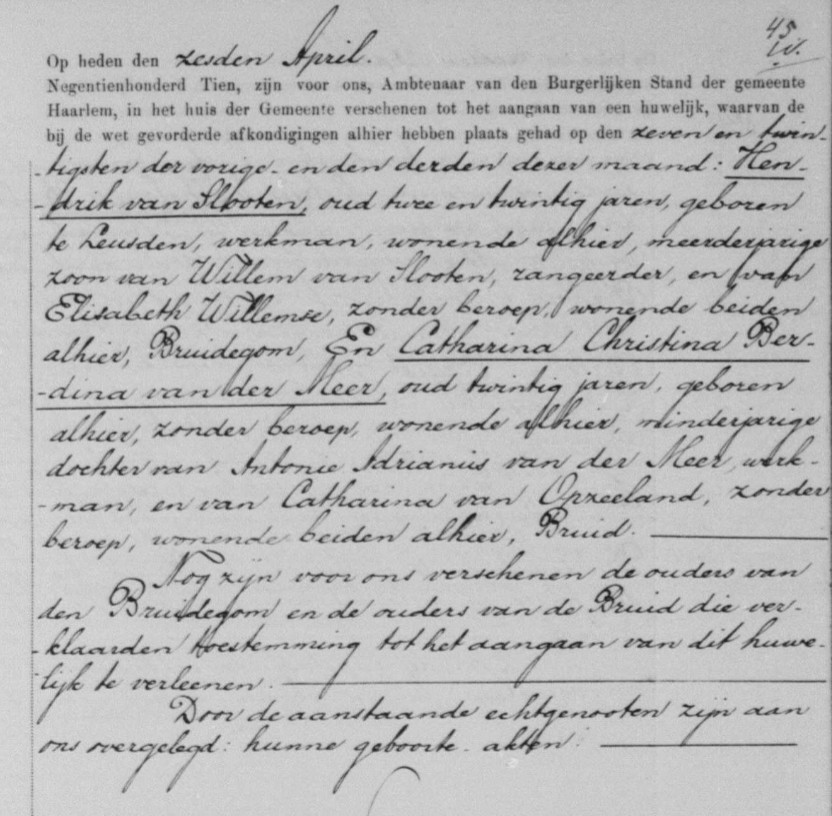 45
iv.
Op heden den zesden April.
Negentienhonderd Tien, zijn voor ons, Ambtenaar van den Burgerlijken Stand der gemeente
Haarlem, in het huis der Gemeente verschenen tot het aangaan van een huwelijk, waarvan de
bij de wet gevorderde afkondigingen alhier hebben plaats gehad op den zeven en twin-
-tigsten der vorige en den derden dezer maand: Hen-
-drik van Slooten, oud twee en twintig jaren, geboren
te Leusden, werkman, wonende alhier, meerderjarige
zoon van Willem van Slooten, rangeerder, en van
Elisabeth Willemse, zonder beroep, wonende beiden
alhier, Bruidegom, En Catharina Christina Ber-
-dina van der Meer, oud twintig jaren, geboren
alhier, zonder beroep, wonende alhier, minderjarige
dochter van Antonie Adrianus van der Meer, werk-
-man, en van Catharina van Opzeeland, zonder
beroep, wonende beiden alhier, Bruid.
Nog zijn voor ons verschenen de ouders van
den Bruidegom en de ouders van de Bruid die ver-
-klaarden toestemming tot het aangaan van dit huwe-
lijk te verleenen.
Door de aanstaande echtgenooten zijn aan
ons overgelegd: hunne geboorte-akten: